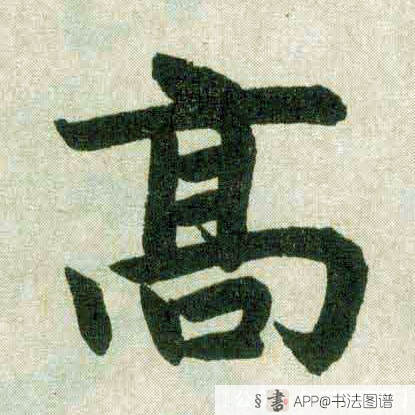 髙
§書 APP@书法图谱